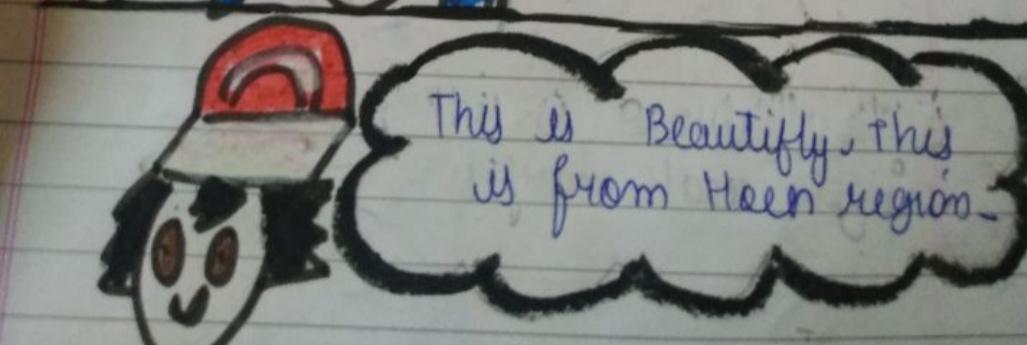 This is Beautifly, this
is from Hoen region.